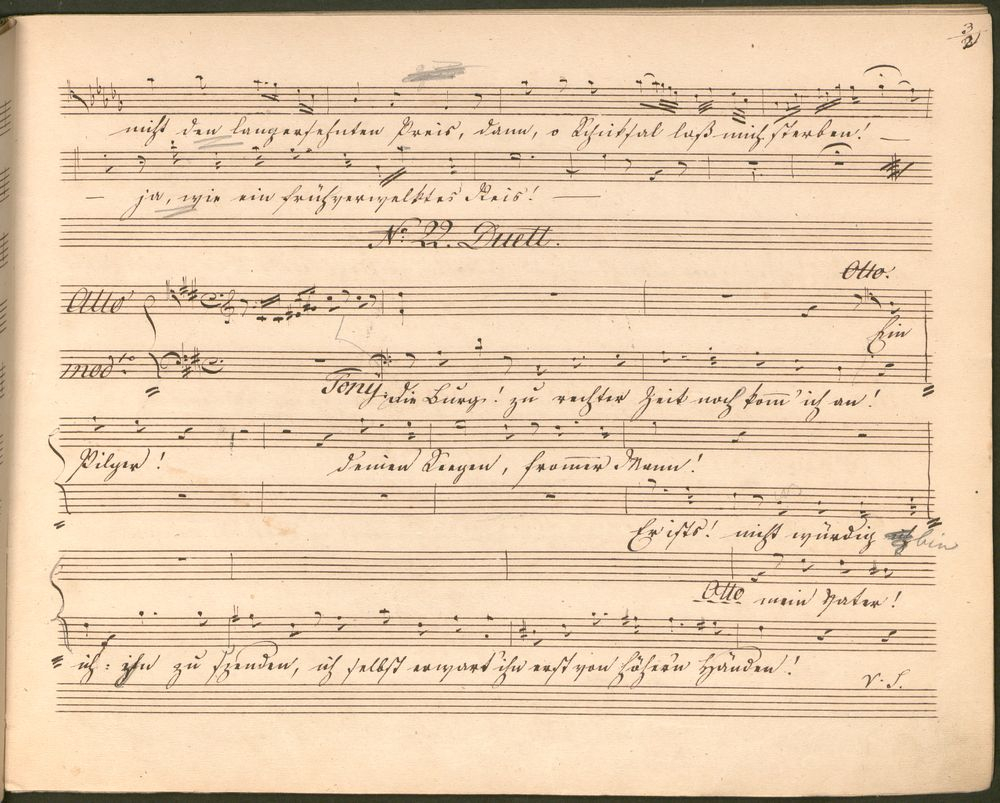 3
2
nicht den langersehnten Preis, dann, o Schiksal laß mich sterben! —
— ja, wie ein frühverwelktes Reis! —
No. 22. Duett.
Otto.
Allo
Ein
modto
Tony: die Burg! zu rechter Zeit noch kom̅' ich an!
Pilger! deinen Seegen, from̅er Mann!
Er ists! nicht würdig bin
Otto mein Vater!
ich: ihn zu spenden, ich selbst erwart' ihn erst von höhern Händen!
V: S.